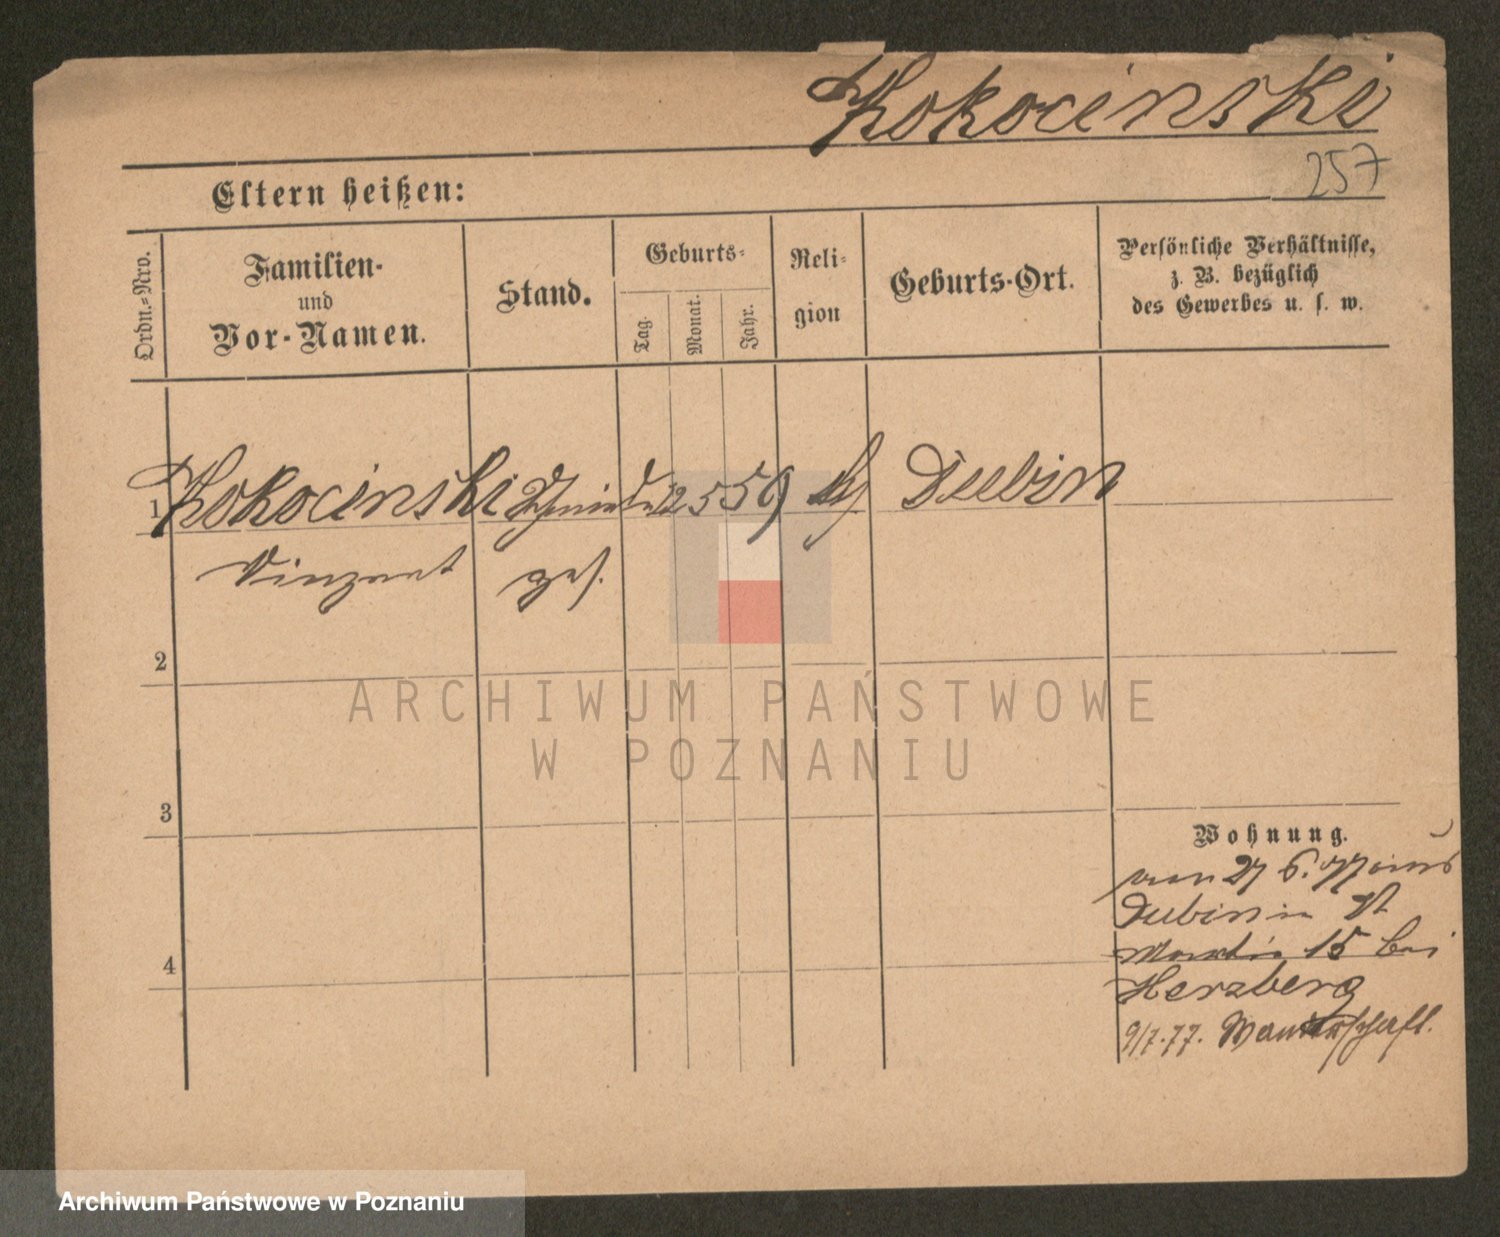 Kokocinski
257
Eltern heißen:
Ordn.-Nro.
Familien-
und
Vor-Namen.
Stand.
Geburts-
Tag.
Monat.
Jahr.
Reli-
gion
Geburts-Ort.
Persönliche Verhältnisse,
z. B. bezüglich
des Gewerbes u. s. w.
1 Kokocinski Schmiede 2 5 59 k Dubin
Vinzent ges.
2
ARCHIWUM PAŃSTWOWE
W POZNANIU
3
Wohnung.
von 27 6. 77 aus
Dubin in St
4 Martin 15 bei
Herzberg
9/7.77. Wanderschaft.
Archiwum Państwowe w Poznaniu